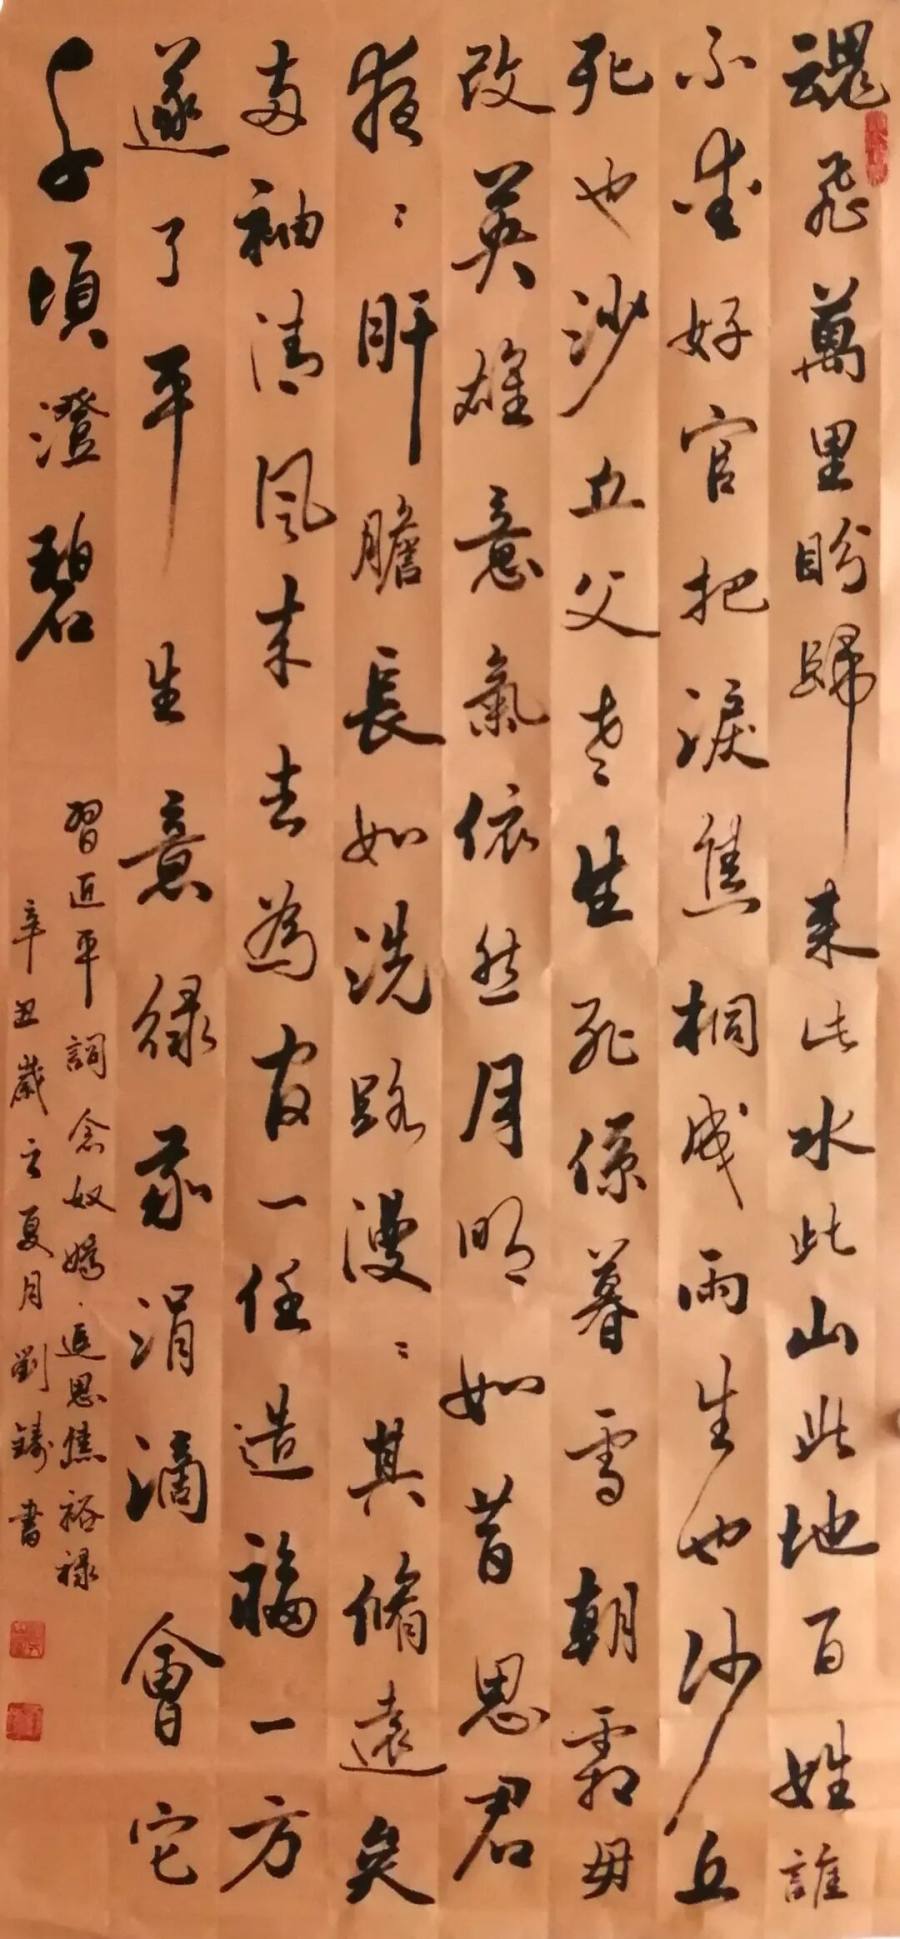 魂飛萬里盼歸来此水此山此地百姓誰
不愛好官把淚焦桐成雨生也沙丘
死也沙丘父老生死係暮雪朝霜毋
改英雄意氣依然月明如昔思君
夜〻肝膽長如洗路漫〻其脩遠矣
两袖清風来去為官一任造福一方
遂了平生意綠我涓滴會它
千頃澄碧
習近平詞念奴嬌·追思焦裕禄
辛丑歲之夏月劉鑄書